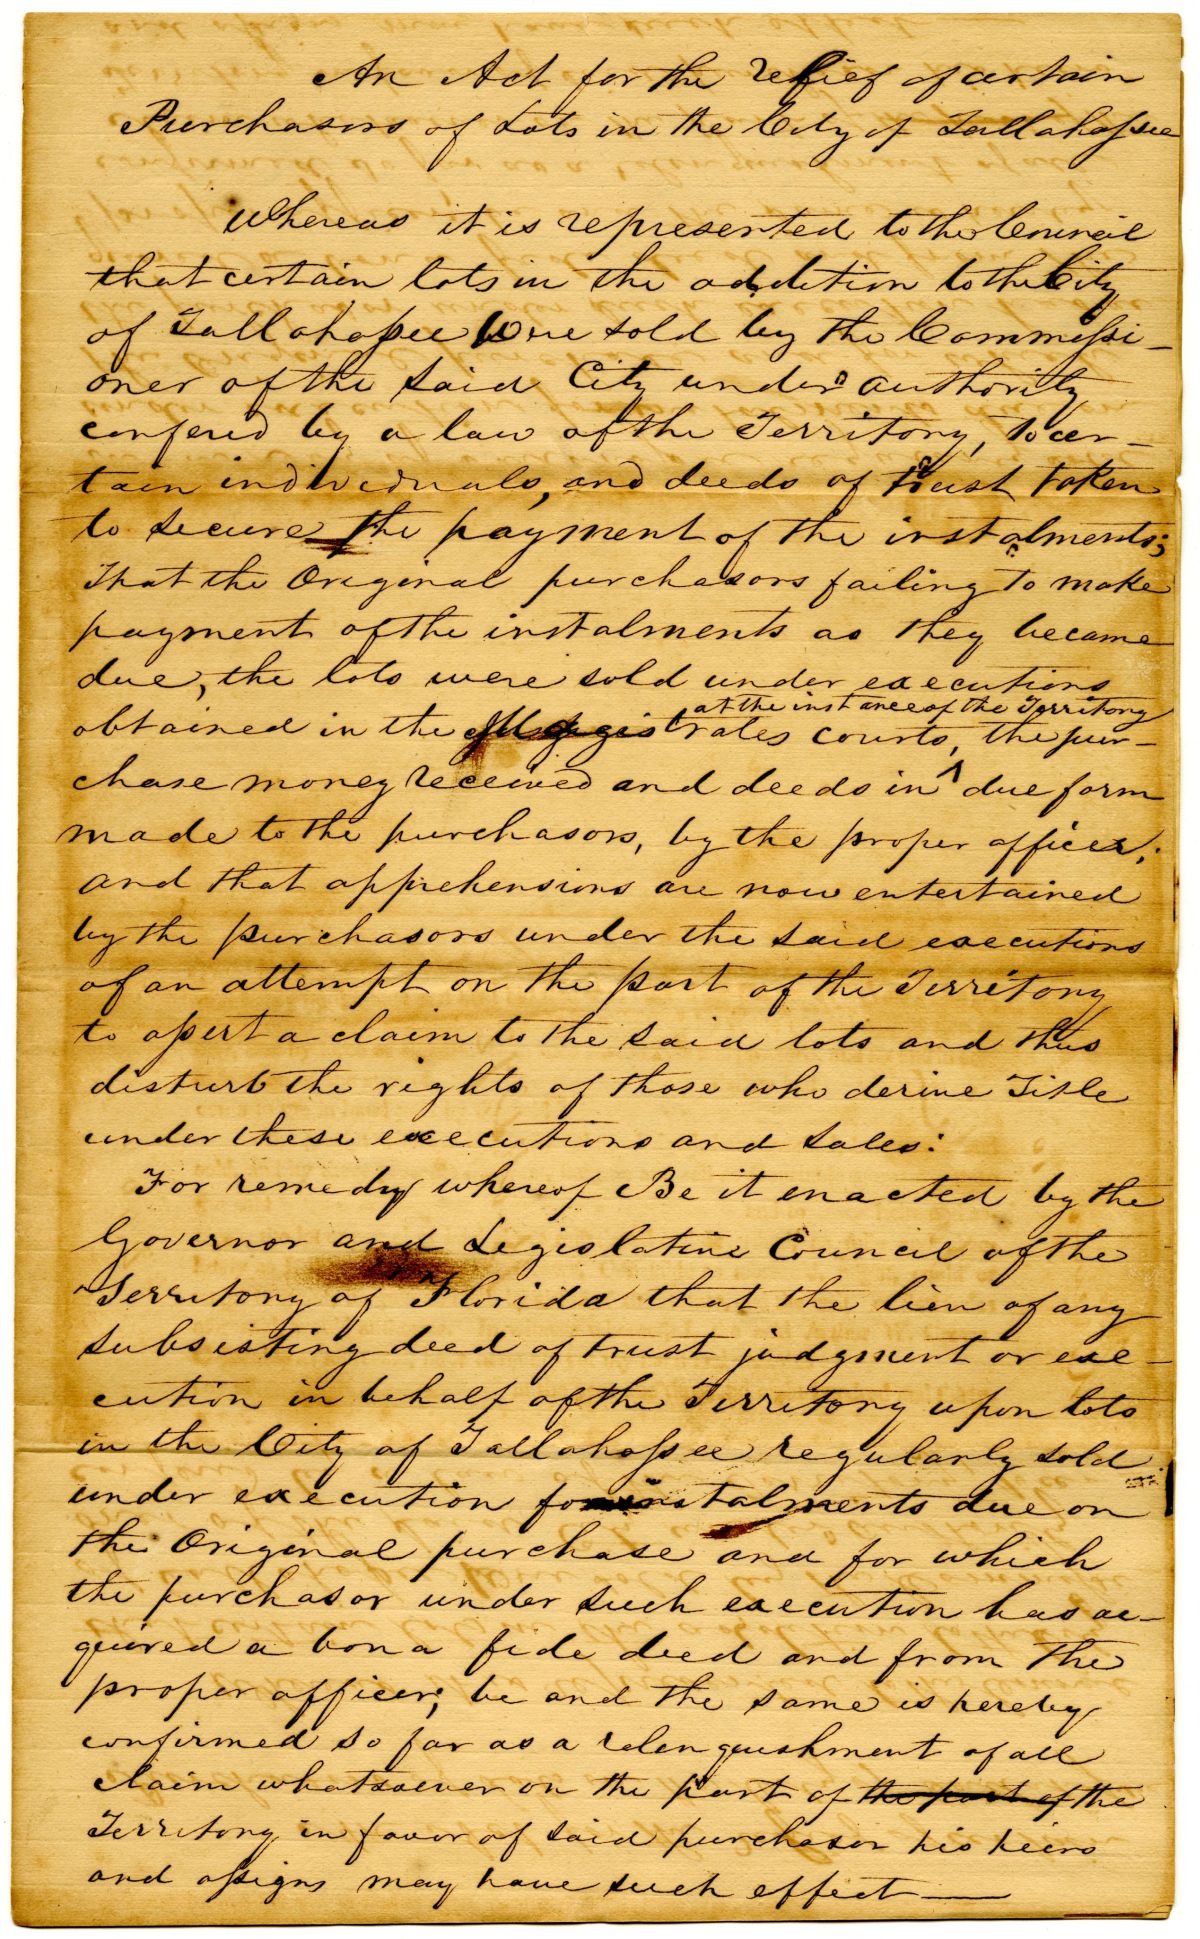 An Act for the relief of certain
Purchasors of Lots in the City of Tallahassee
Whereas it is represented to the Council
that certain lots in the addition to the City
of Tallahassee Were sold by the Commissi-
oner of the said City under authority
confered by a law of the Territory, to cer-
tain individuals, and deeds of trust taken
to secure the payment of the instalments;
That the Original purchasors failing to make
payment of the instalments as they became
due, the lots were sold under executions
at the instance of the Territory
obtained in the Magistrates courts, the pur-
chase money received and deeds in due form
made to the purchasors, by the proper officer;
and that apprehensions are now entertained
by the purchasors under the said executions
of an attempt on the part of the Territory
to assert a claim to the said lots and thus
disturb the rights of those who derive Title
under these executions and sales:
For remedy whereof Be it enacted by the
Governor and Legislative Council of the
Territory of Florida that the lien of any
subsisting deed of trust judgment or exe-
cution in behalf of the Territory upon lots
in the City of Tallahassee regularly sold
under execution for instalments due on
the Original purchase and for which
the purchasor under such execution has ac-
quired a bona fide deed and from the
proper officer; be and the same is hereby
confirmed so far as a relenquishment of all
claim whatsoever on the part of the part of the
Territory in favor of said purchasor his heirs
and assigns may have such effect —